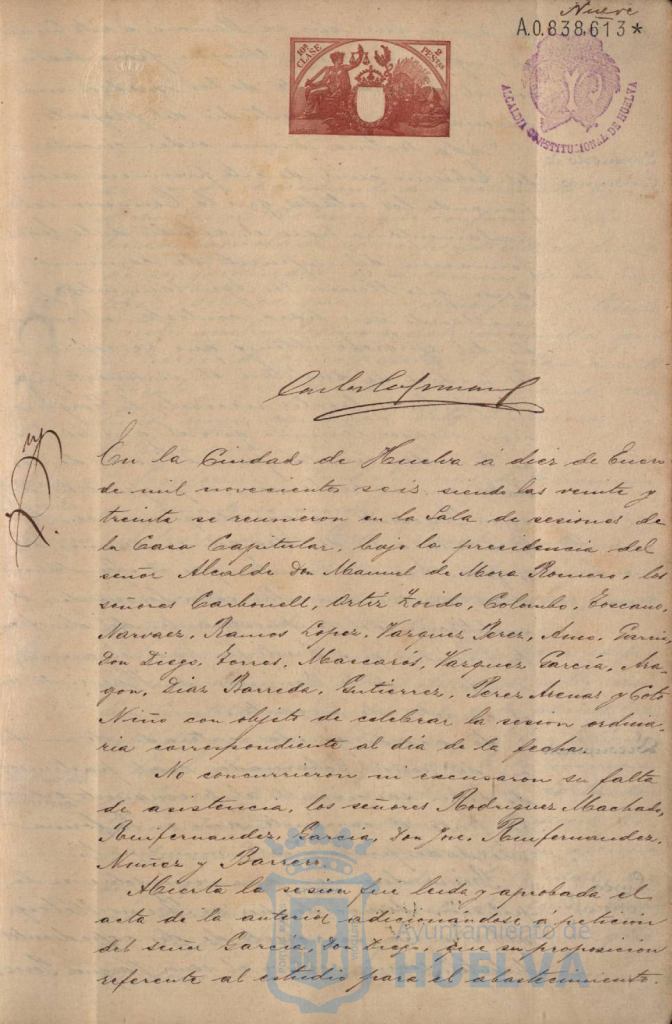 Nueve
A.0.838,613*
10ª CLASE
2 PESETAS
ALCALDIA CONSTITUCIONAL DE HUELVA
En la Ciudad de Huelva á diez de Enero
de mil novecientos seis siendo las veinte y
treinta se reunieron en la Sala de sesiones de
la Casa Capitular, bajo la presidencia del
señor Alcalde Don Manuel de Mora Romero, los
señores Carbonell, Ortiz Zoido, Colombo, Toscano,
Narvaez, Ramos López, Vazquez Perez, Amo, Garcia
Don Diego, Torres, Mascarós, Vazquez García, Ara-
gon, Diaz Barreda, Gutierrez, Perez Arenas y Coto
Niño con objeto de celebrar la sesion ordina-
ria correspondiente al día de la fecha.
No concurrieron ni excusaron su falta
de asistencia, los señores Rodriguez Machado,
Ruifernandez, García, Don José, Ruifernandez,
Nuñez y Barrero.
Abierta la sesion fué leida y aprobada el
acta de la anterior adicionándose á peticion
del señor García, Don Diego, que su proposicion
referente al estudio para el abastecimiento
Ayuntamiento de
HUELVA